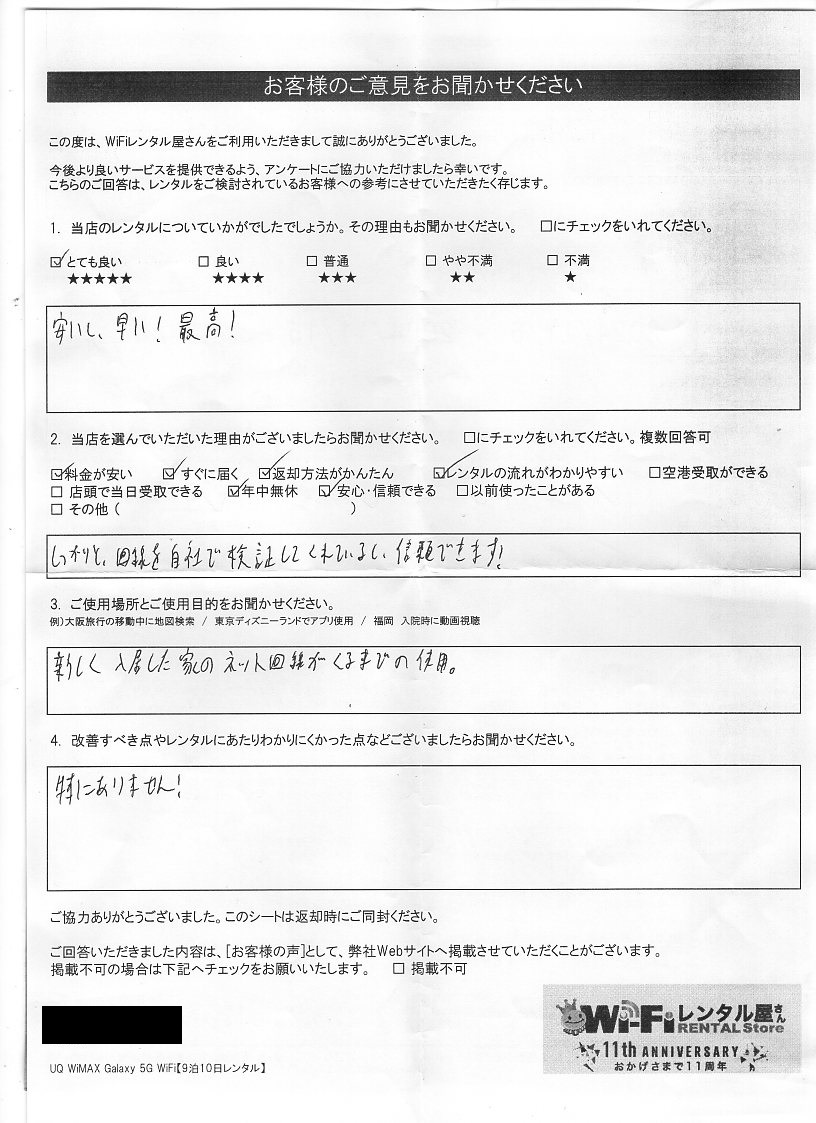 お客様のご意見をお聞かせください
この度は、WiFiレンタル屋さんをご利用いただきまして誠にありがとうございました。
今後より良いサービスを提供できるよう、アンケートにご協力いただけましたら幸いです。
こちらのご回答は、レンタルをご検討されているお客様への参考にさせていただきたく存じます。
1. 当店のレンタルについていかがでしたでしょうか。その理由もお聞かせください。 □にチェックをいれてください。
☑とても良い □ 良い □ 普通 □ やや不満 □ 不満
★★★★★ ★★★★ ★★★ ★★ ★
安いし、早い！最高！
2. 当店を選んでいただいた理由がございましたらお聞かせください。 □にチェックをいれてください。複数回答可
☑料金が安い ☑すぐに届く ☑返却方法がかんたん ☑レンタルの流れがわかりやすい □空港受取ができる
□ 店頭で当日受取できる ☑年中無休 ☑安心・信頼できる □以前使ったことがある
□ その他（ ）
しっかりと、回線を自社で検証してくれているし、信頼できます！
3. ご使用場所とご使用目的をお聞かせください。
例）大阪旅行の移動中に地図検索 / 東京ディズニーランドでアプリ使用 / 福岡 入院時に動画視聴
新しく入居した家のネット回線がくるまでの使用。
4. 改善すべき点やレンタルにあたりわかりにくかった点などございましたらお聞かせください。
特にありません！
ご協力ありがとうございました。このシートは返却時にご同封ください。
ご回答いただきました内容は、[お客様の声]として、弊社Webサイトへ掲載させていただくことがございます。
掲載不可の場合は下記へチェックをお願いいたします。 □ 掲載不可
Wi-Fiレンタル屋さん
RENTAL Store
11th ANNIVERSARY
おかげさまで11周年
UQ WiMAX Galaxy 5G WiFi【9泊10日レンタル】